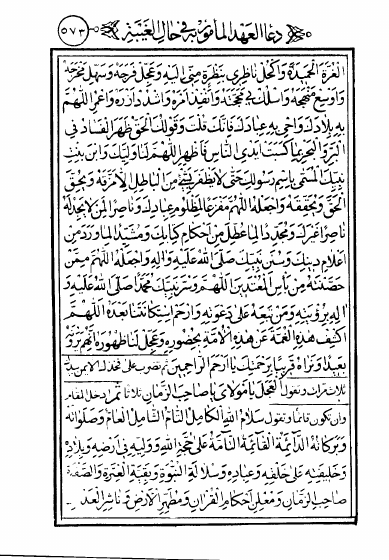 دعاء العهد المأثور به في حال الغيبة ٥٧٣
الغرة الحميدة واكحل ناظري بنظرة مني اليه وعجل فرجه وسهل مخرجه
واوسع منهجه واسلك بي محجته وانفذ امره واشدد ازره واعمر اللهم
به بلادك واحي به عبادك فانك قلت وقولك الحق ظهر الفساد في
البر والبحر بما كسبت ايدي الناس فاظهر اللهم لنا وليك وابن بنت
نبيك المسمى باسم رسولك حتى لا يظفر بشئ من الباطل الا مزقه ويحق
الحق ويحققه واجعله اللهم مفزعا لمظلوم عبادك وناصرا لمن لا يجد له
ناصرا غيرك ومجددا لما عطل من احكام كتابك ومشيدا لما ورد من
اعلام دينك وسنن نبيك صلى الله عليه واله واجعله اللهم ممن
حصنته من بأس المعتدين اللهم وسر نبيك محمدا صلى الله عليه و
اله برؤيته ومن تبعه على دعوته وارحم استكانتنا بعده اللهم
اكشف هذه الغمة عن هذه الامة بحضوره وعجل لنا ظهوره انهم يرونه
بعيدا ونراه قريبا برحمتك يا ارحم الراحمين ثم تضرب على فخذك الايمن بيدك
ثلاث مرات وتقول العجل يا مولاي يا صاحب الزمان ثلاثا
وتقول سلام الله الكامل التام الشامل العام وصلواته
وبركاته الدائمة القائمة التامة على حجة الله ووليه في ارضه وبلاده
وخليفته على خلقه وعباده وسلالة النبوة وبقية العترة والصفوة
صاحب الزمان ومظهر الايمان ومعلن احكام القران ومطهر الارض وناشر العدل